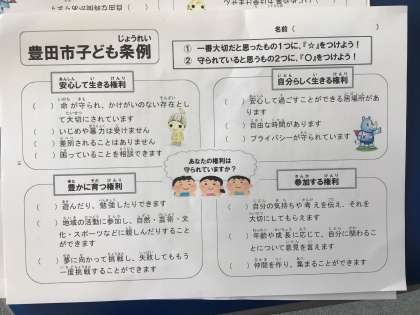 じょうれい
豊田市子ども条例
名前（　　　　　）
① 一番大切だと思ったもの１つに、『☆』をつけよう！
② 守られていると思うもの２つに、『〇』をつけよう！
あんしん い けんり
安心して生きる権利
（　）命が守られ、かけがいのない存在とし
て大切にされています
（　）いじめや暴力は受けません
（　）差別されることはありません
（　）困っていることを相談できます
自分らしく生きる権利
（　）安心して過ごすことができる居場所があ
ります
（　）自由な時間があります
（　）プライバシーが守られています
あなたの権利は
守られていますか？
豊かに育つ権利
（　）遊んだり、勉強したりできます
（　）地域の活動に参加し、自然・芸術・文
化・スポーツなどに親しんだりすること
ができます
（　）夢に向かって挑戦し、失敗してももう
一度挑戦することができます
参加する権利
（　）自分の気持ちや考えを伝え、それを
大切にしてもらえます
（　）年齢や成長に応じて、自分に関わるこ
とについて意見を言えます
（　）仲間を作り、集まることができます